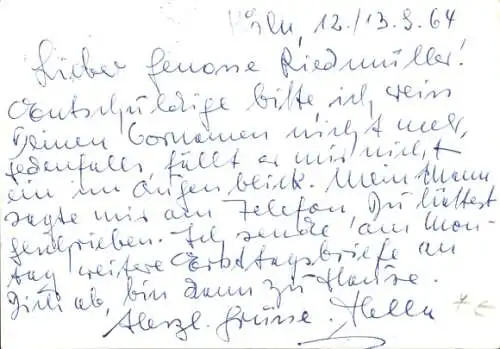 Köln, 12./13.9.64
Lieber Genosse Riedmüller!
Entschuldige bitte, ich weiss
Deinen Vornamen nicht mehr,
jedenfalls fällt er mir nicht
ein im Augenblick. Mein Mann
sagte mir am Telefon, Du hättest
geschrieben. Ich sende am Mon-
tag weitere Erbtagsbriefe an
Dich ab, bin dann zu Hause.
Herzl. Grüsse. Hella